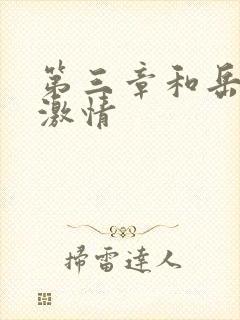 第三章和岳
激情
掃雷達人